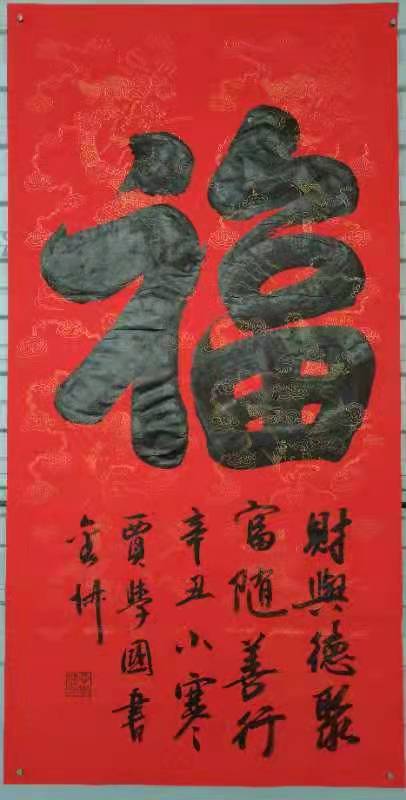 福
財與德聚
富随善行
辛丑小寒
賈學國書